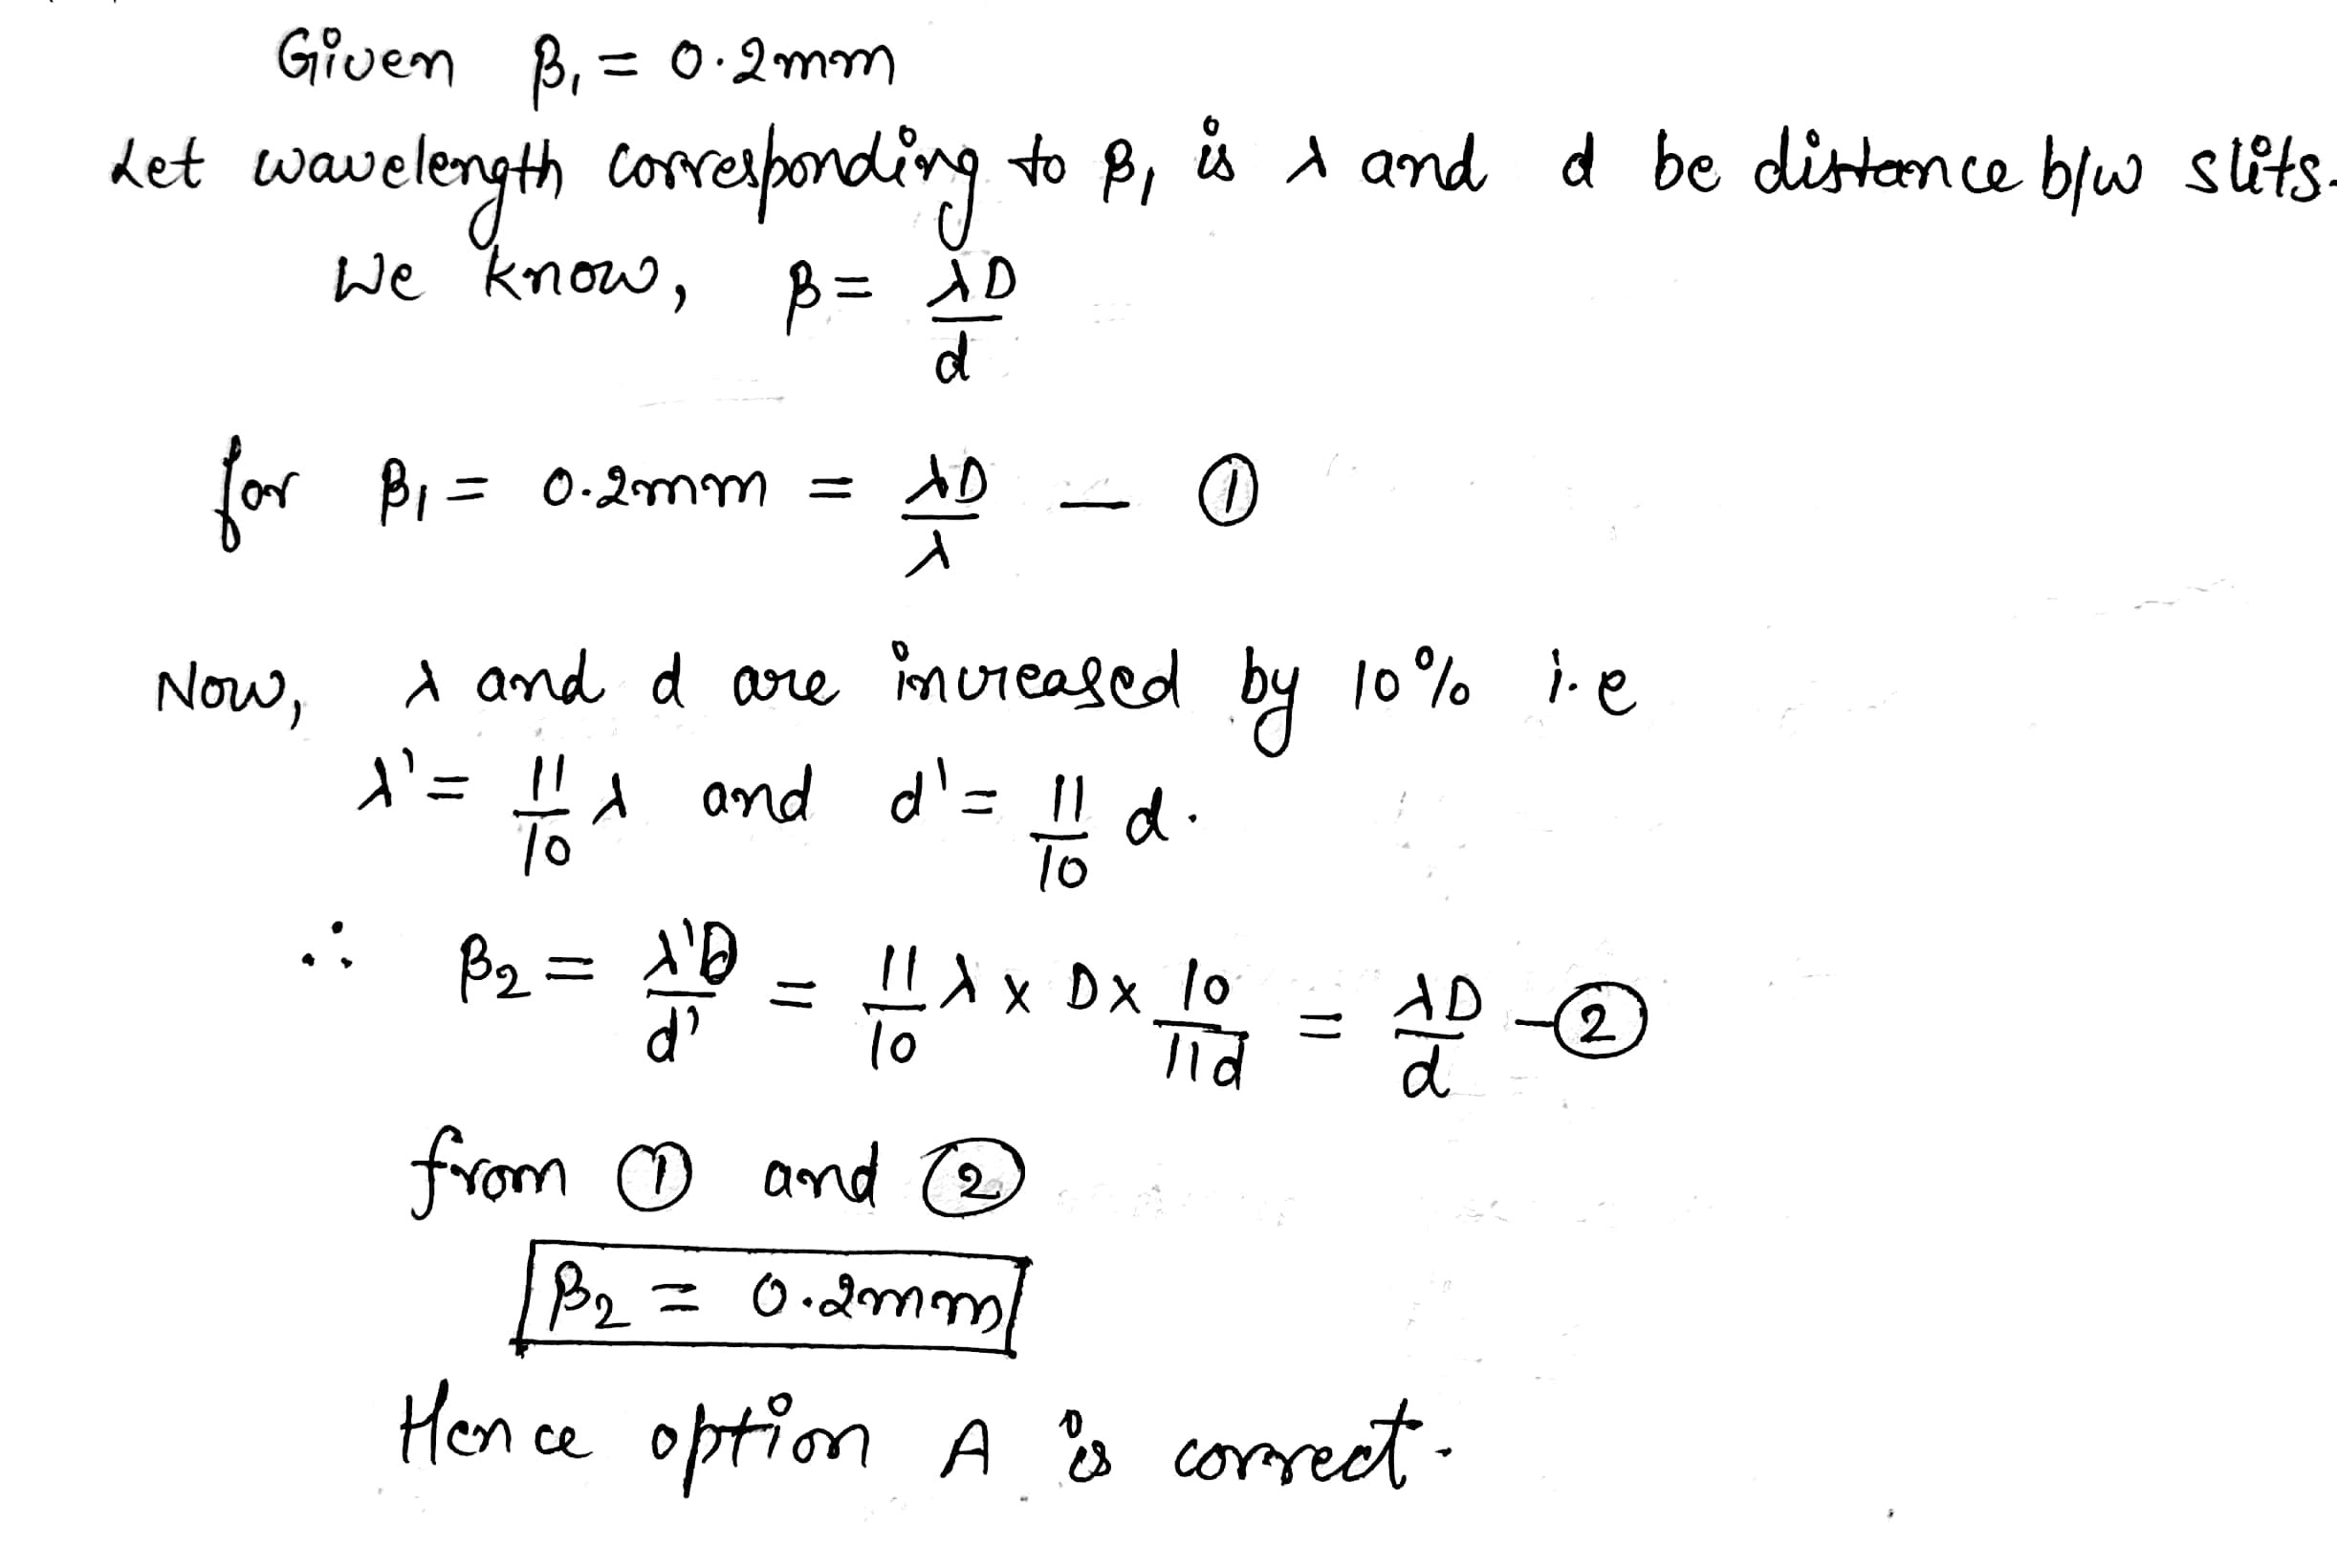 Given β₁ = 0.2mm
Let wavelength corresponding to β₁ is λ and d be distance b/w slits.
We know, β = λD/d
for β₁ = 0.2mm = λD/λ — ①
Now, λ and d are increased by 10% i.e
λ' = 11/10 λ and d' = 11/10 d.
∴ β₂ = λ'D/d' = 11/10 λ x D x 10/11d = λD/d — ②
from ① and ②
β₂ = 0.2mm
Hence option A is correct.